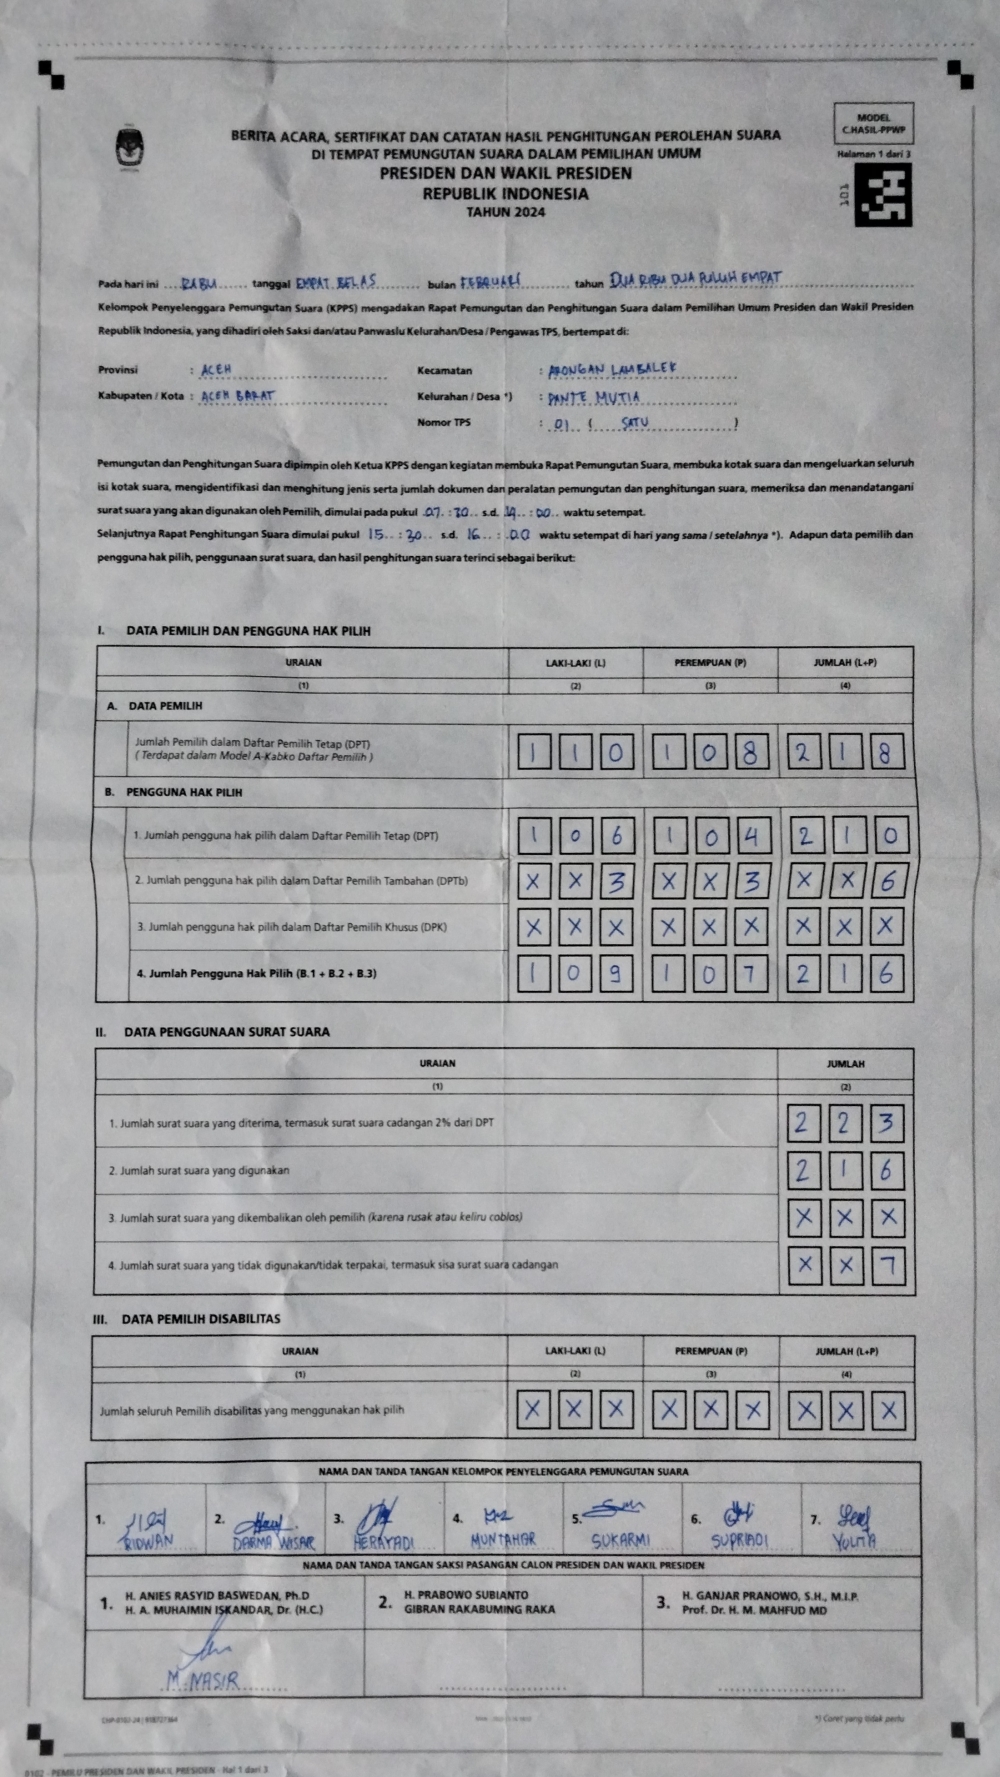 MODEL
C.HASIL-PPWP
Halaman 1 dari 3
101
BERITA ACARA, SERTIFIKAT DAN CATATAN HASIL PENGHITUNGAN PEROLEHAN SUARA
DI TEMPAT PEMUNGUTAN SUARA DALAM PEMILIHAN UMUM
PRESIDEN DAN WAKIL PRESIDEN
REPUBLIK INDONESIA
TAHUN 2024
Pada hari ini RABU tanggal EMPAT BELAS bulan FEBRUARI tahun DUA RIBU DUA PULUH EMPAT
Kelompok Penyelenggara Pemungutan Suara (KPPS) mengadakan Rapat Pemungutan dan Penghitungan Suara dalam Pemilihan Umum Presiden dan Wakil Presiden
Republik Indonesia, yang dihadiri oleh Saksi dan/atau Panwaslu Kelurahan/Desa / Pengawas TPS, bertempat di:
Provinsi : ACEH Kecamatan : ARONGAN LAMBALEK
Kabupaten / Kota : ACEH BARAT Kelurahan / Desa *) : PANTE MUTIA
Nomor TPS : 01 ( SATU )
Pemungutan dan Penghitungan Suara dipimpin oleh Ketua KPPS dengan kegiatan membuka Rapat Pemungutan Suara, membuka kotak suara dan mengeluarkan seluruh
isi kotak suara, mengidentifikasi dan menghitung jenis serta jumlah dokumen dan peralatan pemungutan dan penghitungan suara, memeriksa dan menandatangani
surat suara yang akan digunakan oleh Pemilih, dimulai pada pukul 07 : 30 s.d. 14 : 00 waktu setempat.
Selanjutnya Rapat Penghitungan Suara dimulai pukul 15 : 30 s.d. 16 : 00 waktu setempat di hari yang sama / setelahnya *). Adapun data pemilih dan
pengguna hak pilih, penggunaan surat suara, dan hasil penghitungan suara terinci sebagai berikut:
I. DATA PEMILIH DAN PENGGUNA HAK PILIH
URAIAN LAKI-LAKI (L) PEREMPUAN (P) JUMLAH (L+P)
(1) (2) (3) (4)
A. DATA PEMILIH
Jumlah Pemilih dalam Daftar Pemilih Tetap (DPT) 1 1 0 1 0 8 2 1 8
( Terdapat dalam Model A-Kabko Daftar Pemilih )
B. PENGGUNA HAK PILIH
1. Jumlah pengguna hak pilih dalam Daftar Pemilih Tetap (DPT) 1 0 6 1 0 4 2 1 0
2. Jumlah pengguna hak pilih dalam Daftar Pemilih Tambahan (DPTb) X X 3 X X 3 X X 6
3. Jumlah pengguna hak pilih dalam Daftar Pemilih Khusus (DPK) X X X X X X X X X
4. Jumlah Pengguna Hak Pilih (B.1 + B.2 + B.3) 1 0 9 1 0 7 2 1 6
II. DATA PENGGUNAAN SURAT SUARA
URAIAN JUMLAH
(1) (2)
1. Jumlah surat suara yang diterima, termasuk surat suara cadangan 2% dari DPT 2 2 3
2. Jumlah surat suara yang digunakan 2 1 6
3. Jumlah surat suara yang dikembalikan oleh pemilih (karena rusak atau keliru coblos) X X X
4. Jumlah surat suara yang tidak digunakan/tidak terpakai, termasuk sisa surat suara cadangan X X 7
III. DATA PEMILIH DISABILITAS
URAIAN LAKI-LAKI (L) PEREMPUAN (P) JUMLAH (L+P)
(1) (2) (3) (4)
Jumlah seluruh Pemilih disabilitas yang menggunakan hak pilih X X X X X X X X X
NAMA DAN TANDA TANGAN KELOMPOK PENYELENGGARA PEMUNGUTAN SUARA
1. 2. 3. 4. 5. 6. 7.
RIDWAN DARMA WISAR HERAYADI MUNTAHAR SUKARMI SUPRIADI YOLITA
NAMA DAN TANDA TANGAN SAKSI PASANGAN CALON PRESIDEN DAN WAKIL PRESIDEN
1. H. ANIES RASYID BASWEDAN, Ph.D 2. H. PRABOWO SUBIANTO 3. H. GANJAR PRANOWO, S.H., M.I.P.
H. A. MUHAIMIN ISKANDAR, Dr. (H.C.) GIBRAN RAKABUMING RAKA Prof. Dr. H. M. MAHFUD MD
M. NASIR
*) Coret yang tidak perlu
0102 - PEMILU PRESIDEN DAN WAKIL PRESIDEN - Hal 1 dari 3